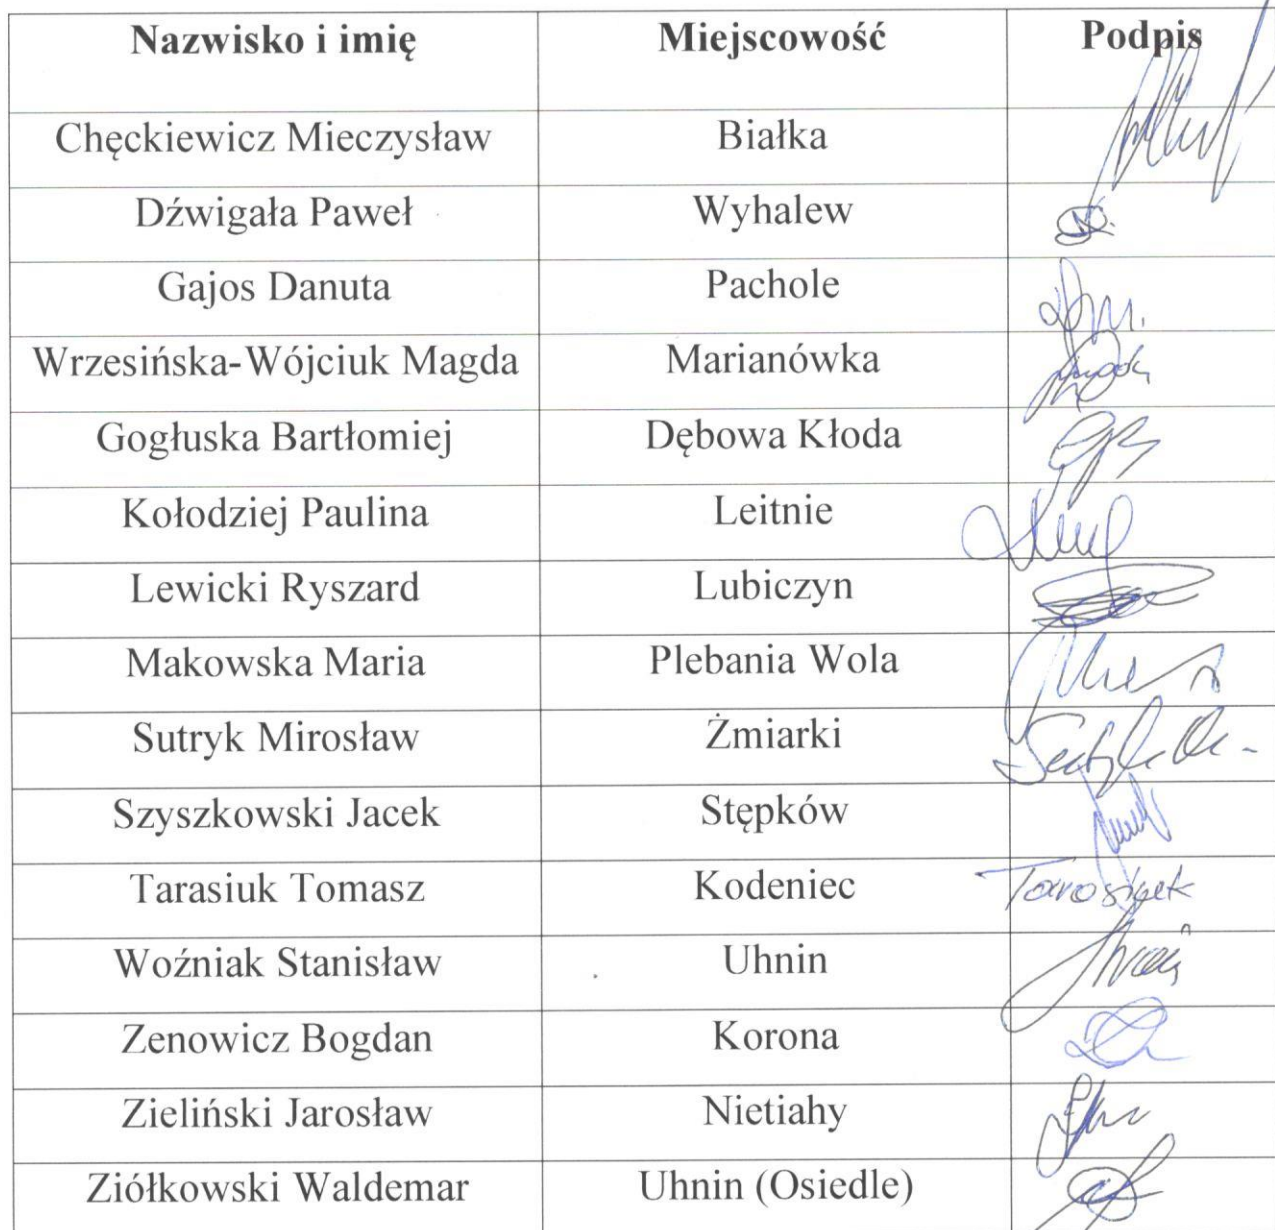 Nazwisko i imię Miejscowość Podpis
Chęckiewicz Mieczysław Białka
Dźwigała Paweł Wyhalew
Gajos Danuta Pachole
Wrzesińska-Wójciuk Magda Marianówka
Gogłuska Bartłomiej Dębowa Kłoda
Kołodziej Paulina Leitnie
Lewicki Ryszard Lubiczyn
Makowska Maria Plebania Wola
Sutryk Mirosław Żmiarki
Szyszkowski Jacek Stępków
Tarasiuk Tomasz Kodeniec
Woźniak Stanisław Uhnin
Zenowicz Bogdan Korona
Zieliński Jarosław Nietiahy
Ziółkowski Waldemar Uhnin (Osiedle)